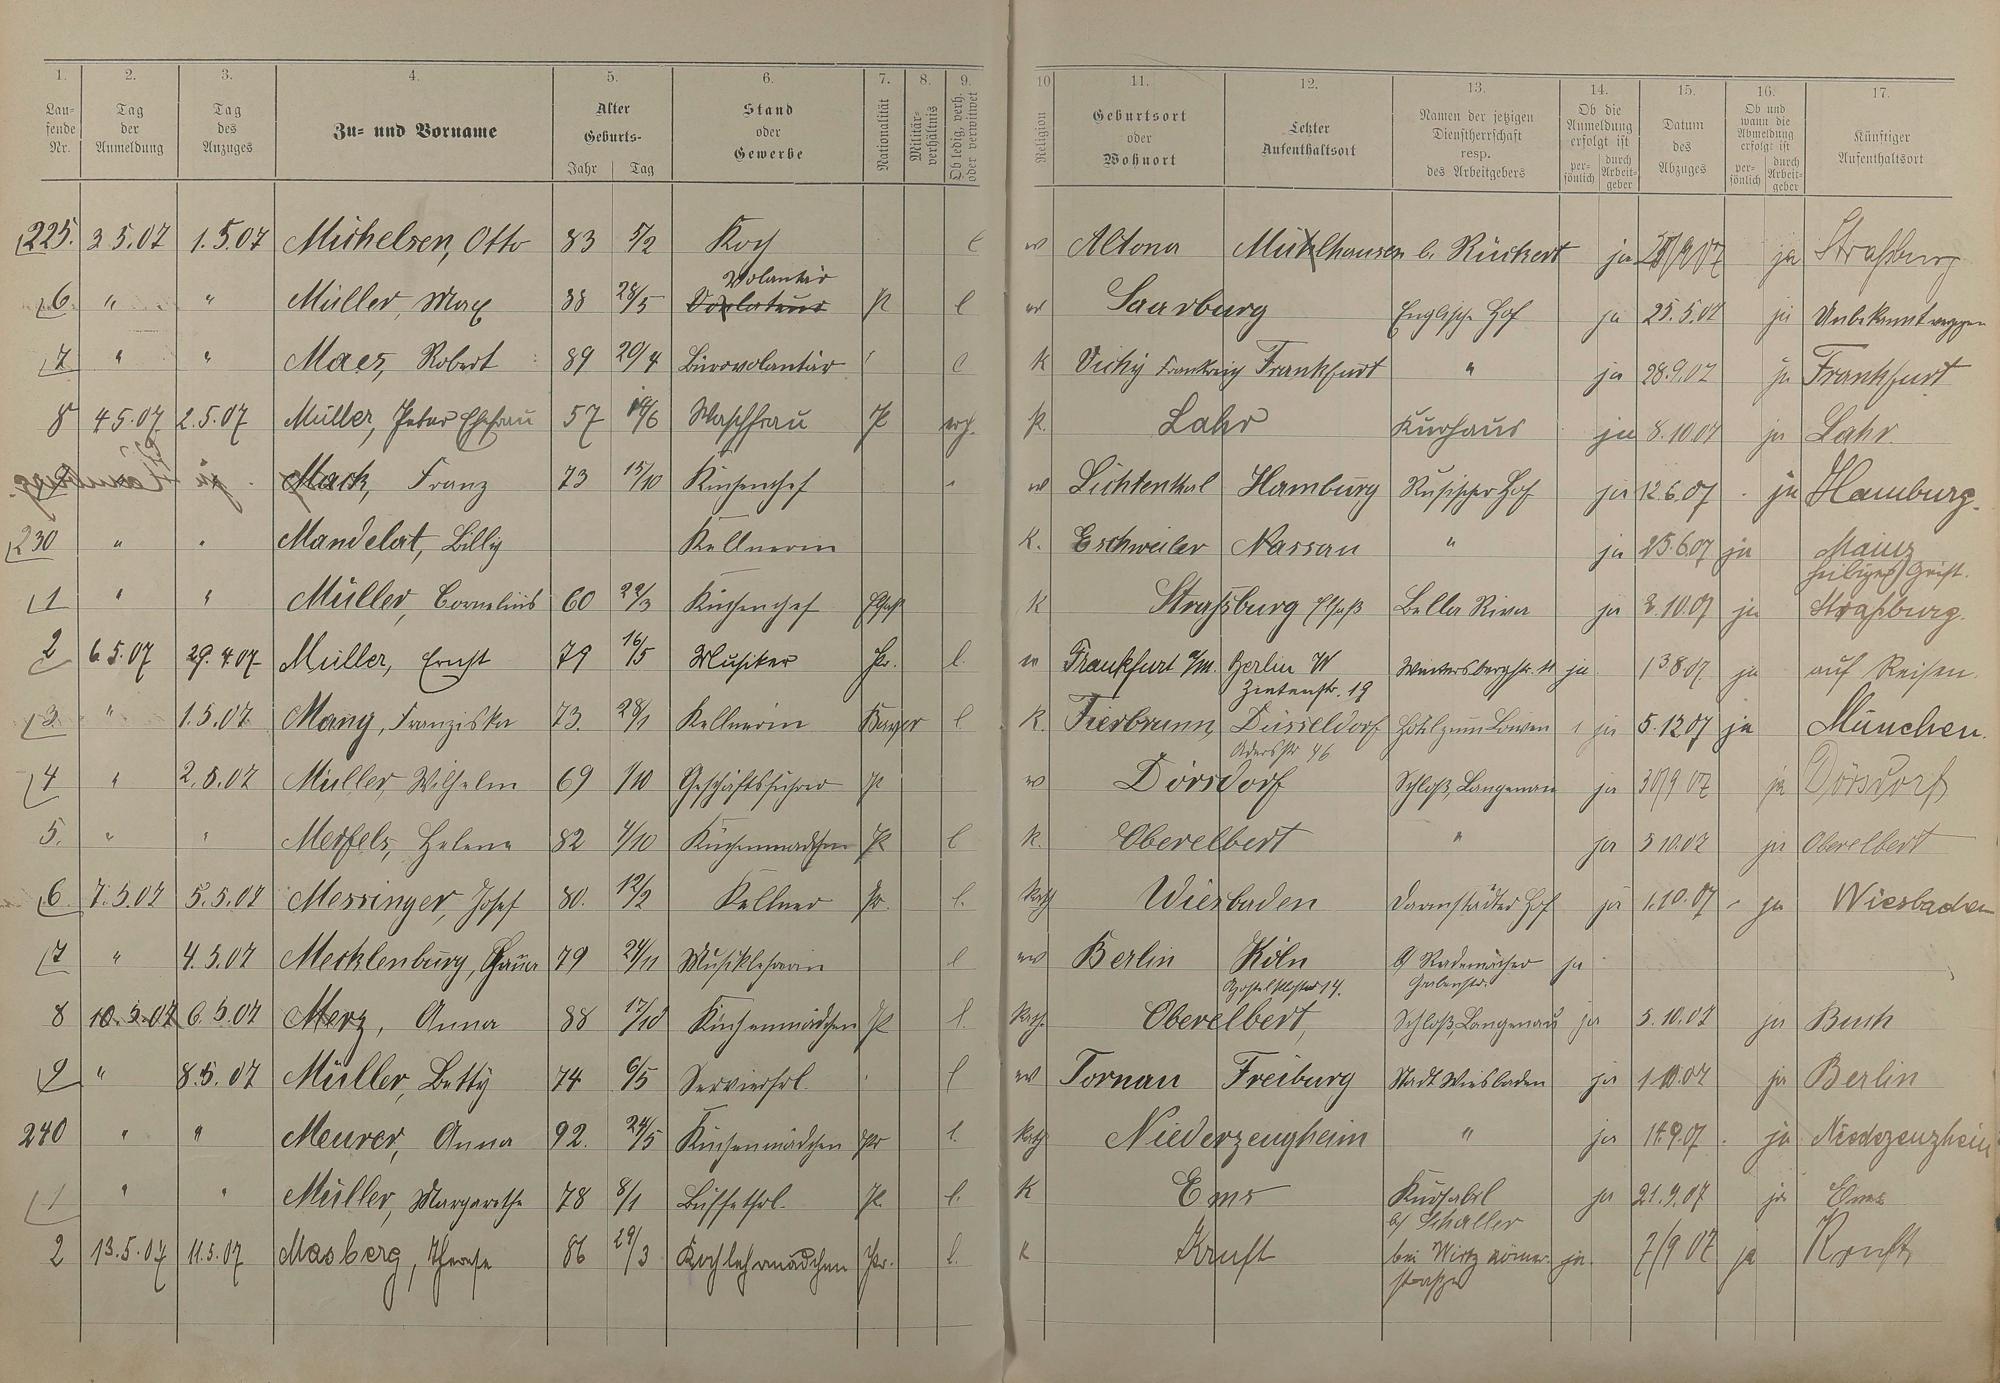 1. 2. 3. 4. 5. 6. 7. 8. 9. 10 11. 12. 13. 14. 15. 16. 17.
Lau-
fende
Nr.
Tag
der
Anmeldung
Tag
des
Anzuges
Zu- und Vorname
Alter
Geburts-
Jahr Tag
Stand
oder
Gewerbe
Nationalität
Militär-
verhältnis
Ob ledig, verh.
oder verwitwet
Religion
Geburtsort
oder
Wohnort
Letzter
Aufenthaltsort
Namen der jetzigen
Dienstherrschaft
resp.
des Arbeitgebers
Ob die
Anmeldung
erfolgt ist
per-
sönlich
durch
Arbeit-
geber
Datum
des
Abzuges
Ob und
wann die
Abmeldung
erfolgt ist
per-
sönlich
durch
Arbeit-
geber
Künftiger
Aufenthaltsort
225. 3 5.07 1.5.07 Michelsen, Otto 83 5/2 Koch l Altona Mühlhausen b. Rückert ja ja Straßburg
Volantär
6 " " Müller, Max 88 28/5 P l Saarburg Englischer Hof ja 25.5.07 ja Unbekannt
7 " " Maes, Robert 89 20/4 Bürovolantär l K Vichy Frankreich Frankfurt " ja 28.9.07 ja Frankfurt
8 4 5.07 2.5.07 Müller, Peter Ehefrau 57 14/6 Waschfrau P verh. K. Lahr Kurhaus ja 8.10 07 ja Lahr.
Mack, Franz 73 15/10 Küchenchef " Lichtenthal Hamburg Russischer Hof ja 12.6.07 ja Hamburg.
230 " " Mandelat, Lilly Kellnerin K. Eschweiler Nassau " ja 25.6.07 ja Mainz
heiliger Geist.
1 " " Müller, Cornelius 60 22/3 Küchenchef Elsaß K Straßburg Elsaß Bella Riva ja 3.10.07 ja Straßburg.
2 6.5.07 29.4.07 Müller, Ernst 79 16/5 Musiker Pr. l. Frankfurt a/M. Berlin W ja 1 3 8 07 ja auf Reisen.
Zietenstr. 19
3. " 1.5.07 Mang, Franziska 73. 28/1 Kellnerin Bayer l K. Fierbrunn, Düsseldorf Hotel zum Löwen ja 5.12 07 ja München.
Adersstr 46
4 " 2.5.07 Müller, Wilhelm 69 1/10 Geschäftsführer P Dörsdorf Schloß Langenau ja 30/9 07 ja Dörsdorf
5. " " Merfels, Helene 82 4/10 Küchenmädchen P l K. Oberelbert " ja 5 10.07 ja Oberelbert
6 7.5.07 5.5.07 Messinger, Josef 80. 12/2 Kellner Pr. l. Kath Wiesbaden Darmstädter Hof ja 1.10.07 ja Wiesbaden
7 " 4.5.07 Mecklenburg, 79 24/11 Musiklehrerin l Berlin Köln b/ Rademacher ja
Apostelkloster 14.
8 10.5.07 6.5.07 Merz, Anna 88 17/10 Küchenmädchen P l. Kath. Oberelbert, Schloß Langenau ja 5.10.07 ja Buch
9 " 8.5.07 Müller, Betty 74 6/5 Servierfrl. l Tornau Freiburg Stadt Wiesbaden ja 1 10.07 ja Berlin
240 " " Meurer, Anna 92. 24/5 Küchenmädchen Pr l. Kath Niederzeugheim " ja 14.9.07 ja Niederzeuzheim
1 " " Müller, Margarethe 78 8/1 Büffetfrl. P. l. K Ems Kursaal ja 21.9.07 ja Ems
b/ Schaller
2 13.5.07 11.5.07 Masberg, Therese 86 29/3 Kochlehrmädchen Pr. l. K Kruft bei Wirtz Römer- ja. 7/9 07 ja Kruft
straße